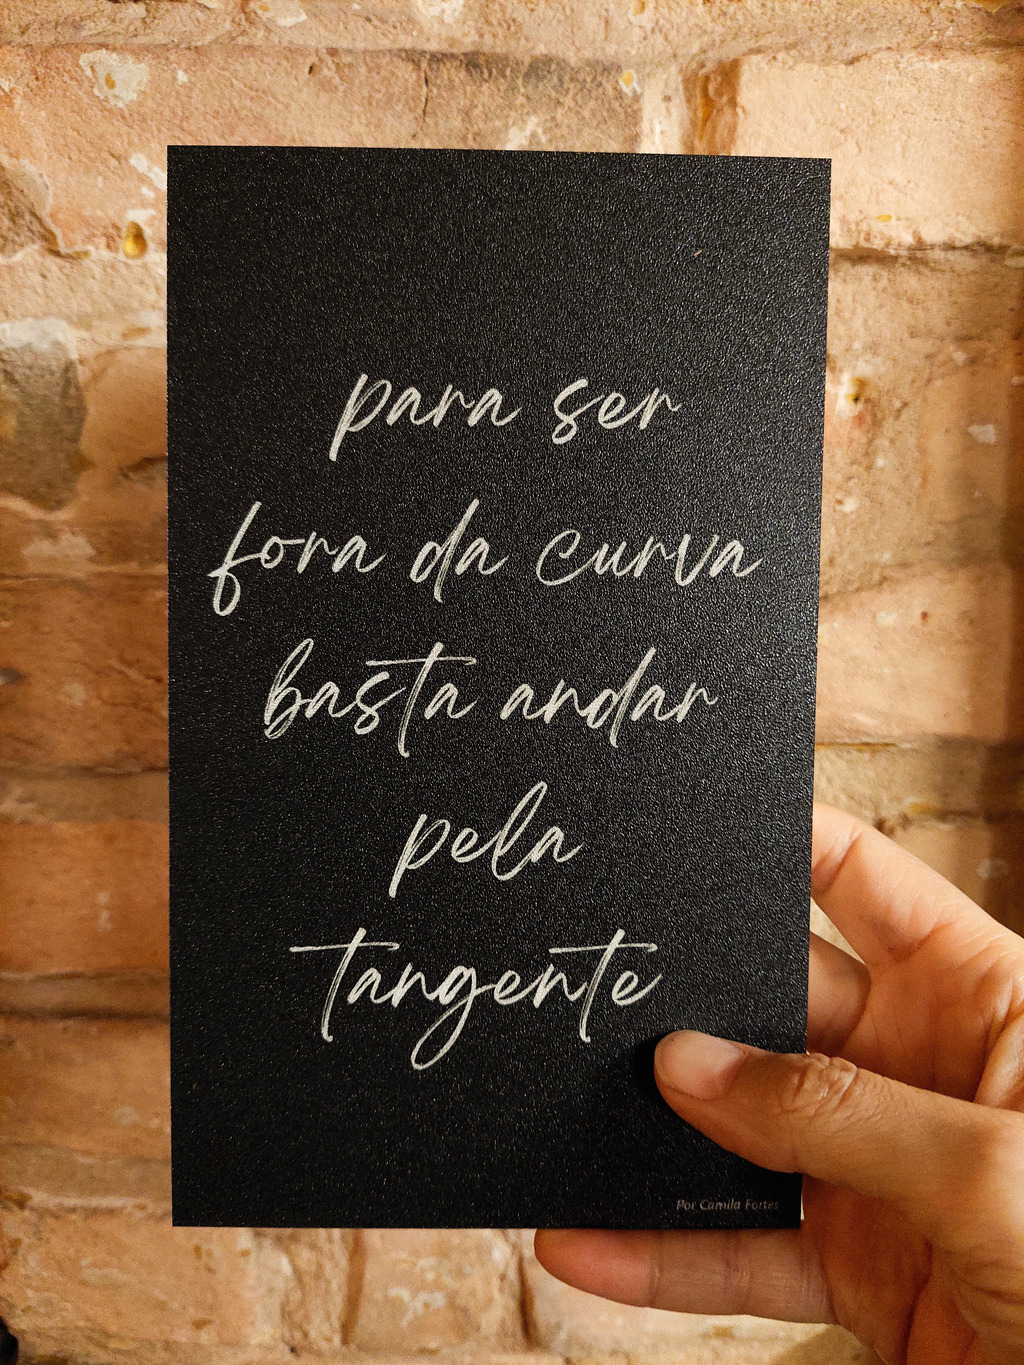 para ser
fora da curva
basta andar
pela
tangente
Por Camila Fortes